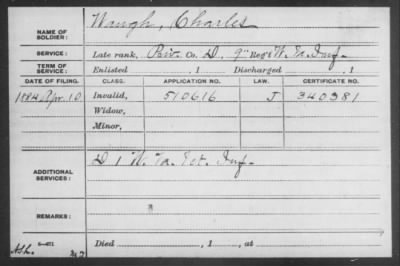 NAME OF SOLDIER: Waugh, Charles
SERVICE: Late rank, Priv. Co. D, 9" Reg't W. Va. Inf.
TERM OF SERVICE: Enlisted , 1 Discharged , 1
DATE OF FILING. CLASS. APPLICATION NO. LAW. CERTIFICATE NO.
1884 Apr. 10 Invalid, 510616 J 340381
Widow,
Minor,
ADDITIONAL SERVICES: D 1 W. Va. Vet. Inf.
REMARKS:
Died , 1 , at